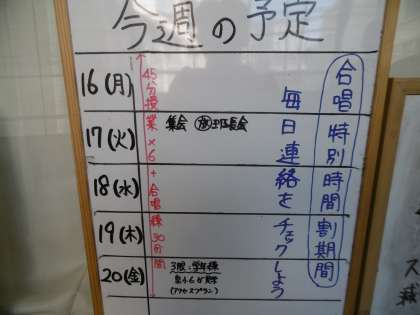 今週の予定
16(月)
17(火)
集会 放 班長会
18(水)
19(木)
20(金)
3限:学年練
(アクセスプラン)
45分授業×6+合唱練30分間
毎日連絡をチェックしよう
合唱特別時間割期間